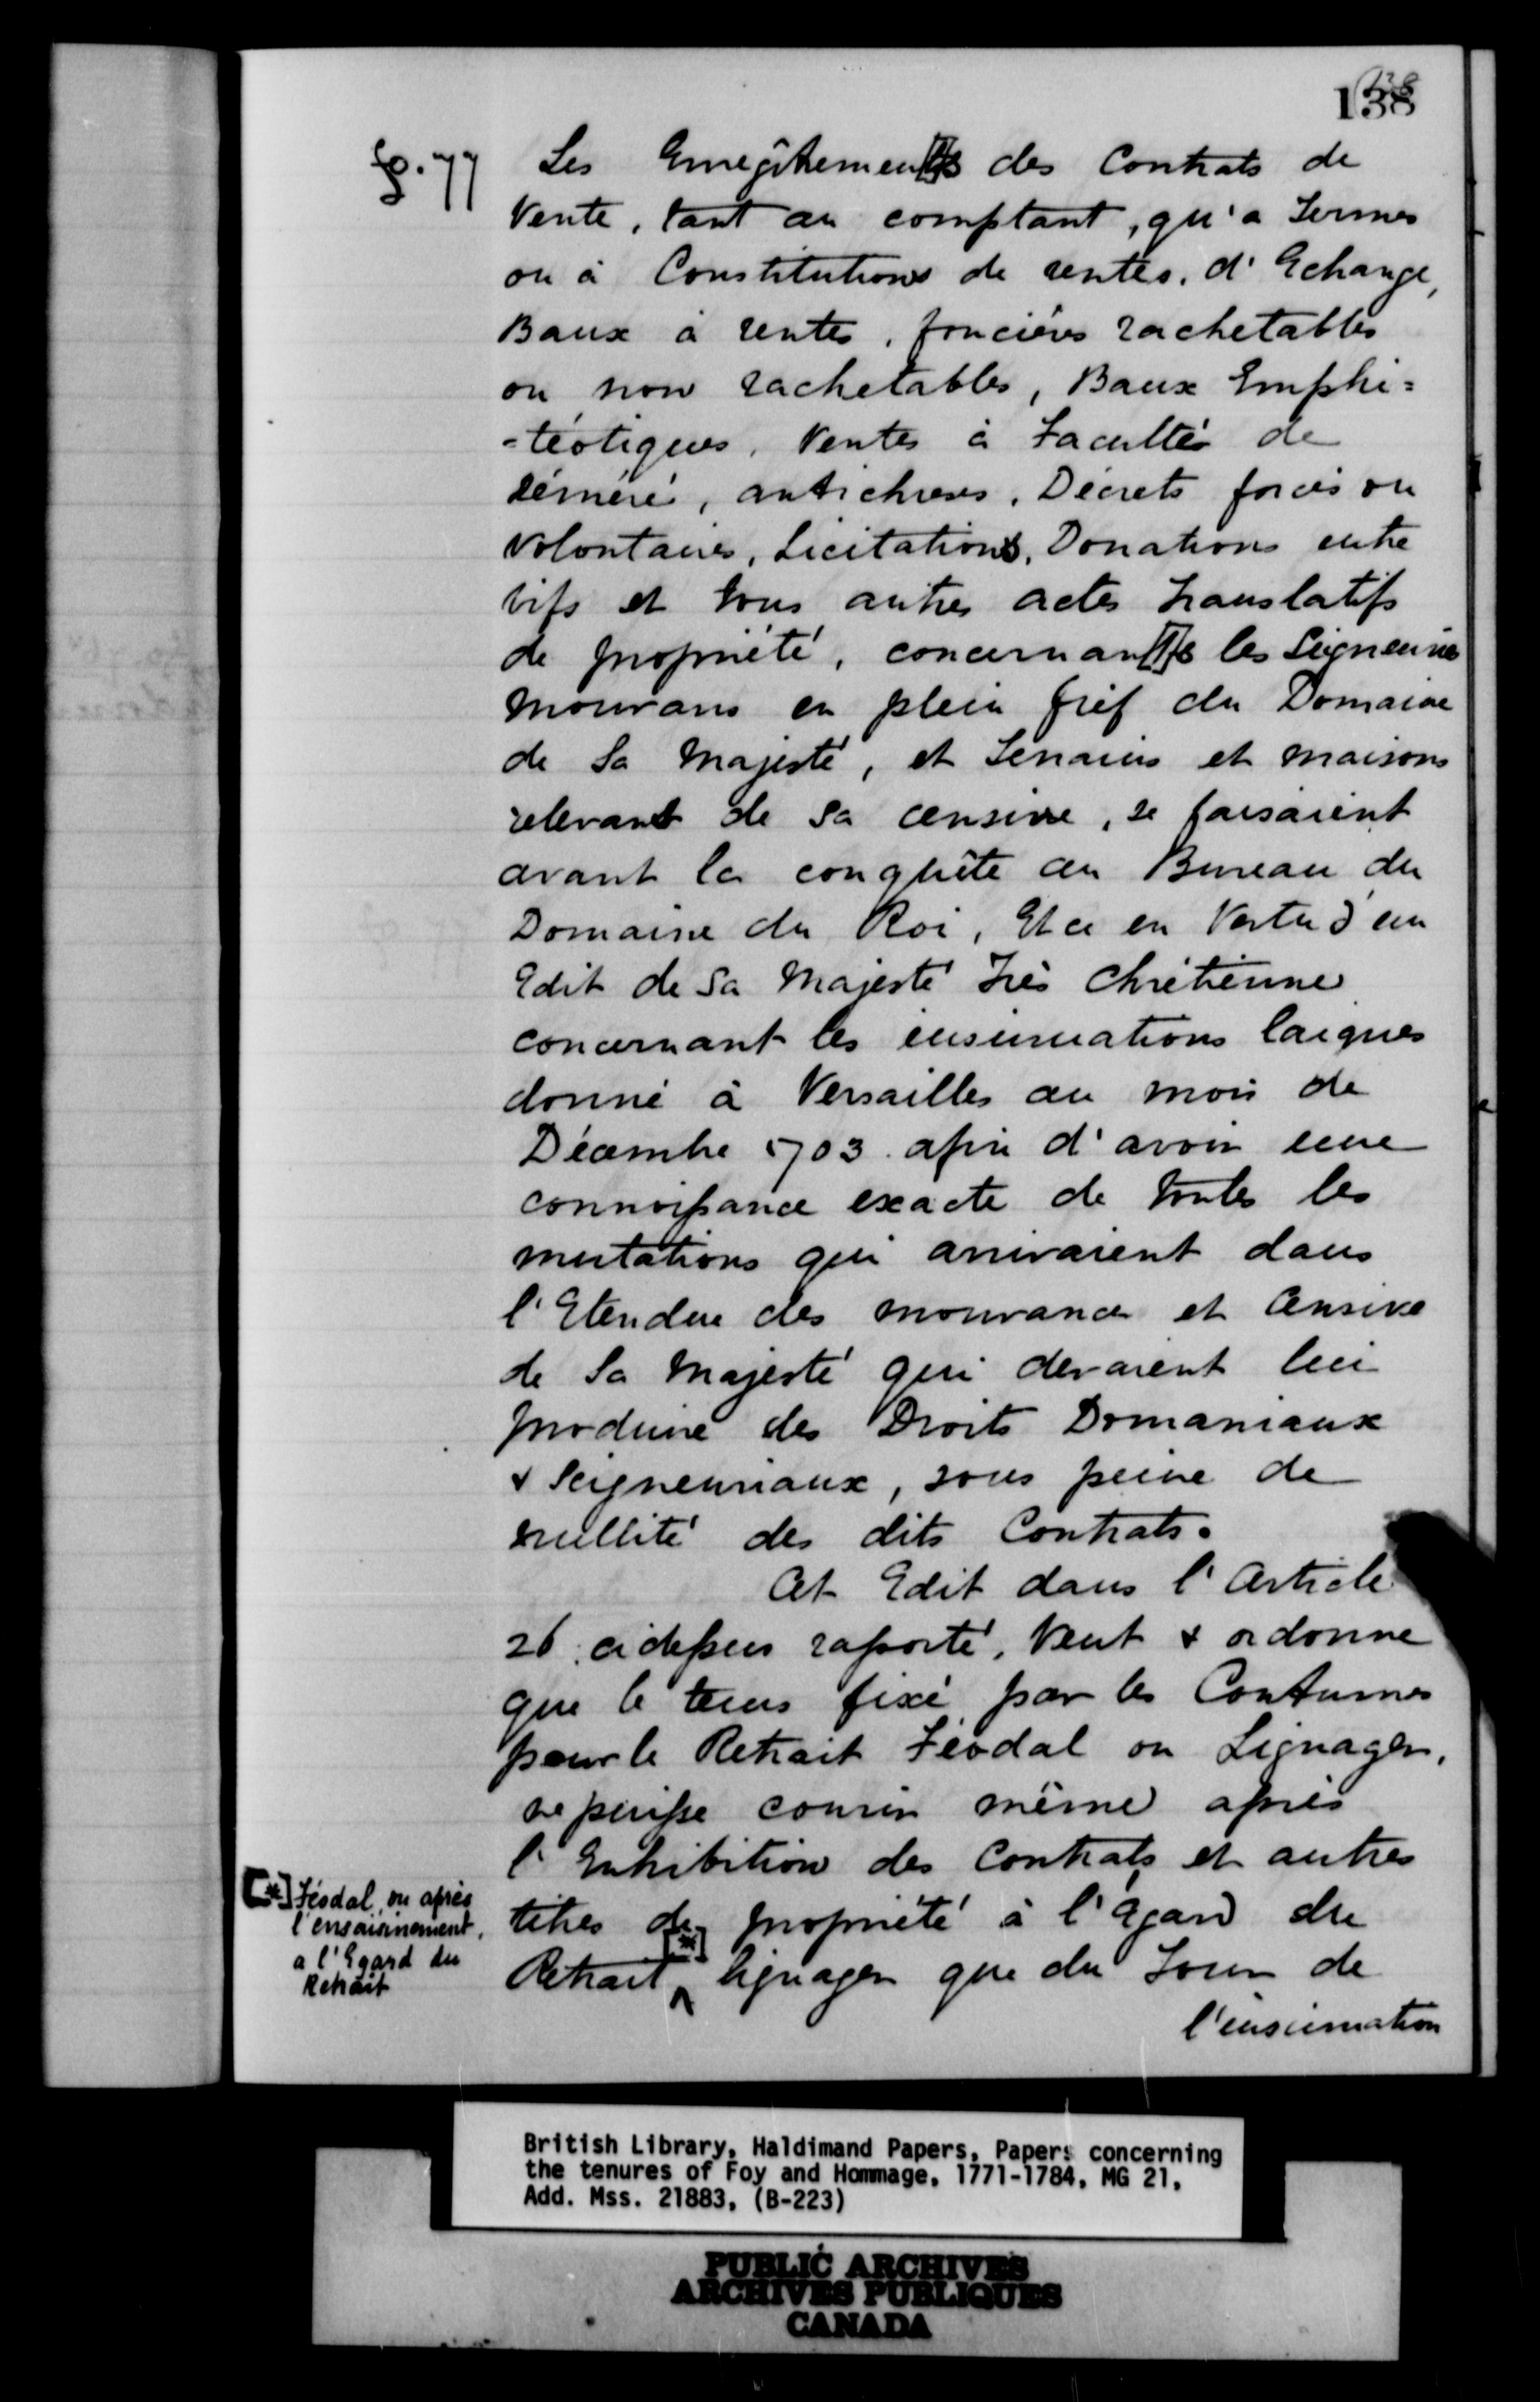 138
fo. 77
Les Enregîtrements des Contrats de
Vente, tant au comptant, qu'a Termes
ou à Constitutions de rentes, d'Echange,
Baux à rentes, foncières rachetables
ou non rachetables, Baux Emphi=
-téotiques, Ventes à Faculté de
réméré, antichreses, Décrets forcés ou
Volontaires, Licitations, Donations entre
vifs et tous autres actes translatifs
de propriété, concernants les Seigneuries
mouvans en plein fief du Domaine
de Sa Majesté, et Terrains et maisons
relevant de Sa censive, se faisaient
avant la conquête au Bureau du
Domaine du Roi, Et ce en Vertu d'un
Edit de Sa Majesté Très Chrétienne
concernant les insinuations laiques
donné à Versailles au mois de
Décembre 1703. afin d'avoir une
connoissance exacte de toutes les
mutations qui arrivaient dans
l'Etendue des mouvance et Censive
de Sa Majesté qui devaient lui
produire des Droits Domaniaux
& Seigneuriaux, sous peine de
nullité des dits Contrats.
Cet Edit dans l'Article
26. cidessus raporté, Veut & ordonne
que le tems fixé par les Coutumes
pour le Retrait Féodal ou Lignager,
ne puisse courir même après
l'Exhibition des Contrats et autres
titres de propriété à l'Egard du
Retrait [*] lignager que du Jour de
l'insinuation
[*] Féodal, ou après
l'ensaisinement,
a l'Egard du
Retrait
British Library, Haldimand Papers, Papers concerning
the tenures of Foy and Hommage, 1771-1784, MG 21,
Add. Mss. 21883, (B-223)
PUBLIC ARCHIVES
ARCHIVES PUBLIQUES
CANADA